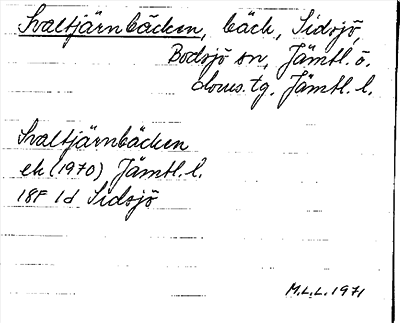 Svaltjärnbäcken, bäck, Sidsjö,
Bodsjö sn, Jämtl. ö.
doms. tg. Jämtl. l.
Svaltjärnbäcken
ek (1970) Jämtl. l.
18F 1d Sidsjö
M.L.L. 1971